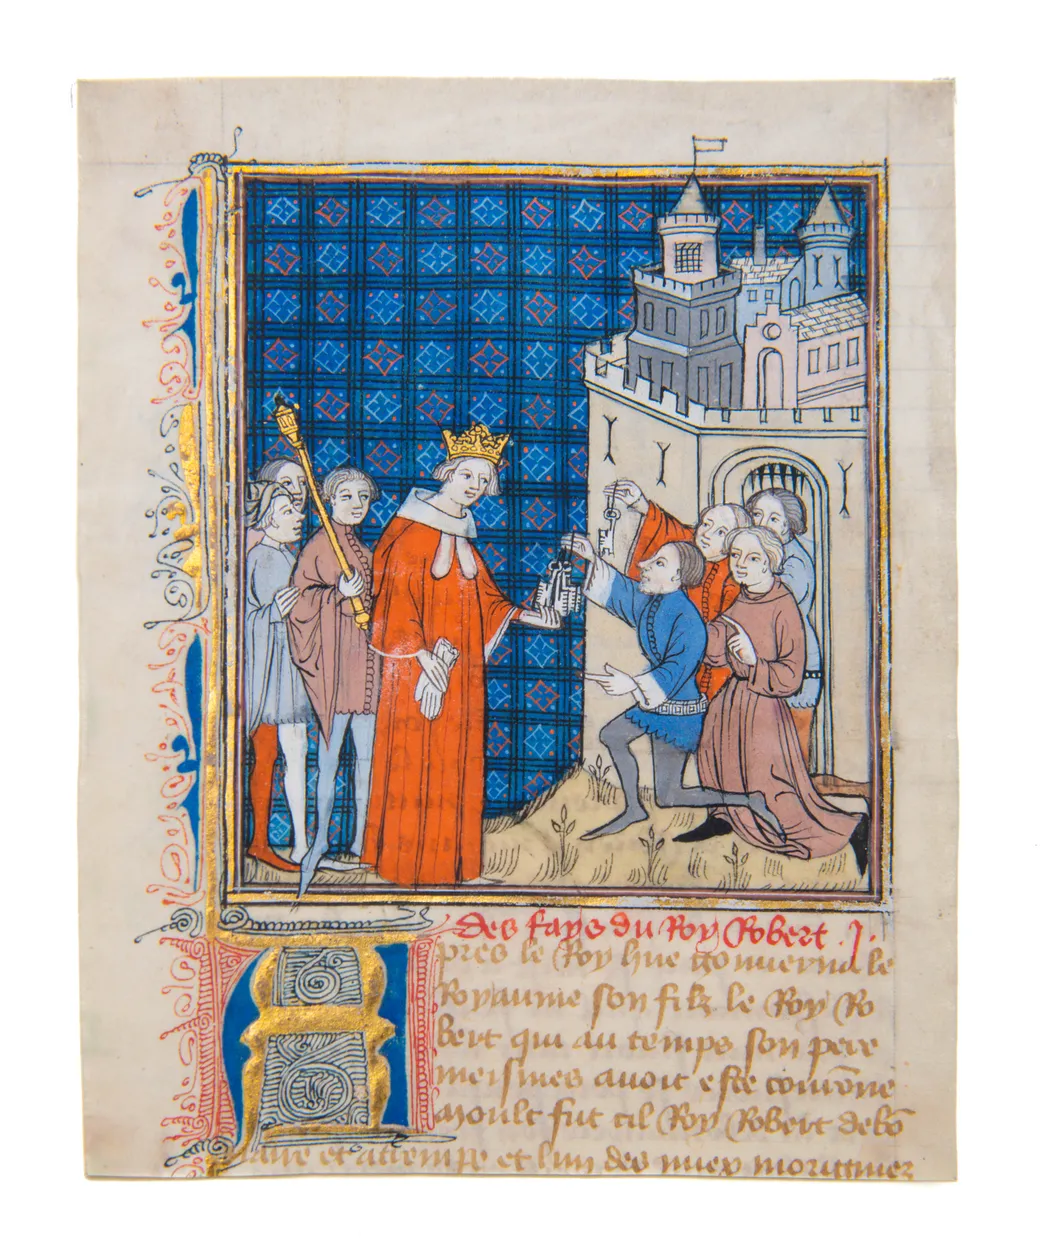 des fays du Roy Robert .j.
Apres le Roy hue gouuerna le
Royaume son filz le Roy Ro
bert qui au temps son pere
meismes auoit este couronne
moult fut cil Roy Robert de bō
naire et attempe et lun des miex